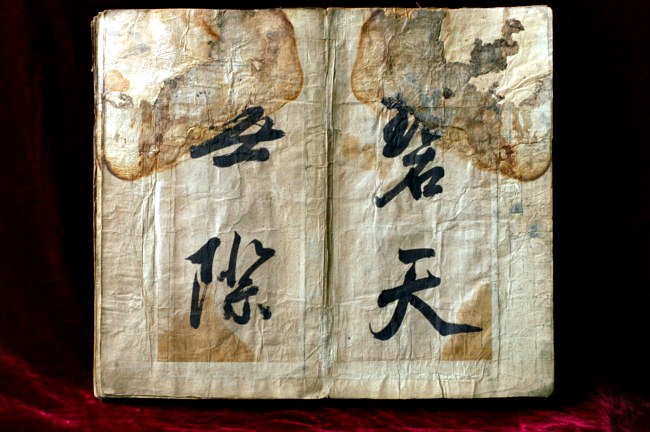 碧天
無際